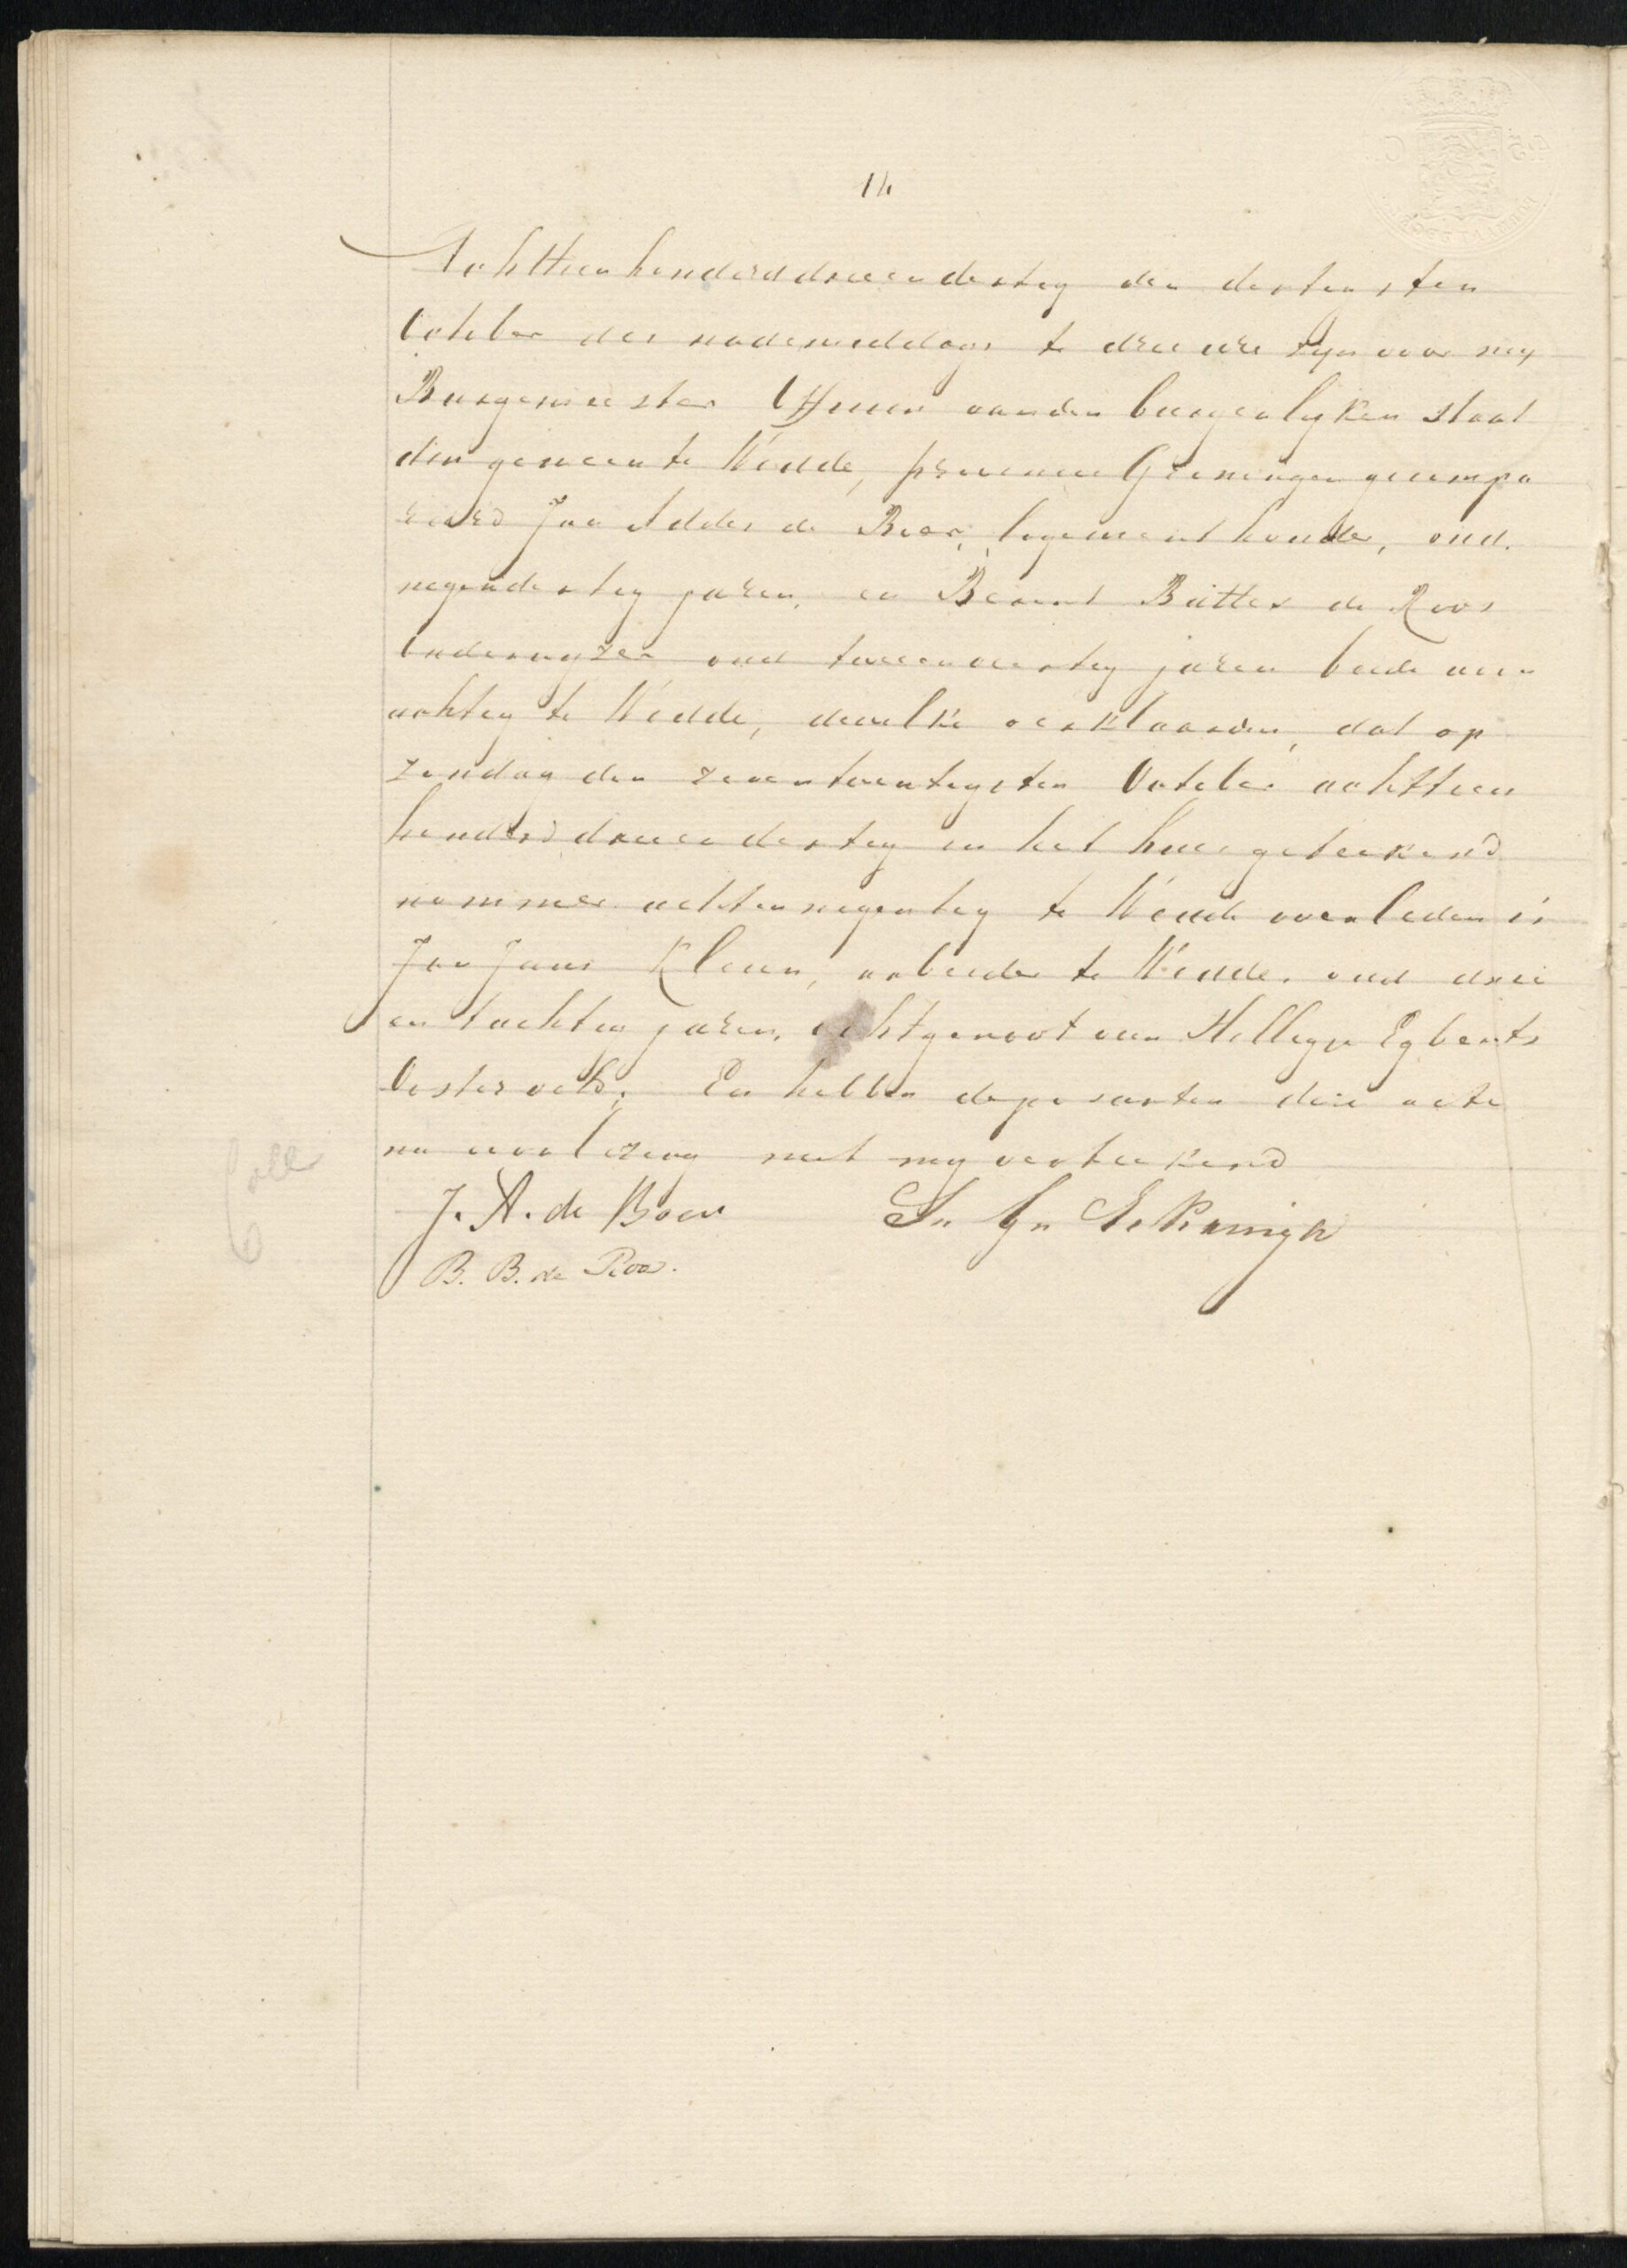 14
Achttien honderd drieendertig den dertigsten
October des nademiddags te drie ure zyn voor my
Burgemeester Officier van den burgerlyken staat
der gemeente Wedde, provincie Groningen gecompa
reerd Jan Addes de Boer, logementhouder, oud
negendertig jaren, en Berend Botter de Roos
Onderwyzer oud tweeendertig jaren beide woon
achtig te Wedde, dewelke verklaarden, dat op
zondag den zeventwentigsten October achttien
honderd drieendertig in het huis geteekend
nommer achtennegentig te Wedde overleden is
Jan Jans Klein, arbeider te Wedde, oud drie
en tachtig jaren, echtgenoot van Hilligje Egberts
Oosterveld; En hebben deposanten deze acte
na voorlezing met my verteekend
J. A. de Boer
B. B. de Roos.
Coll